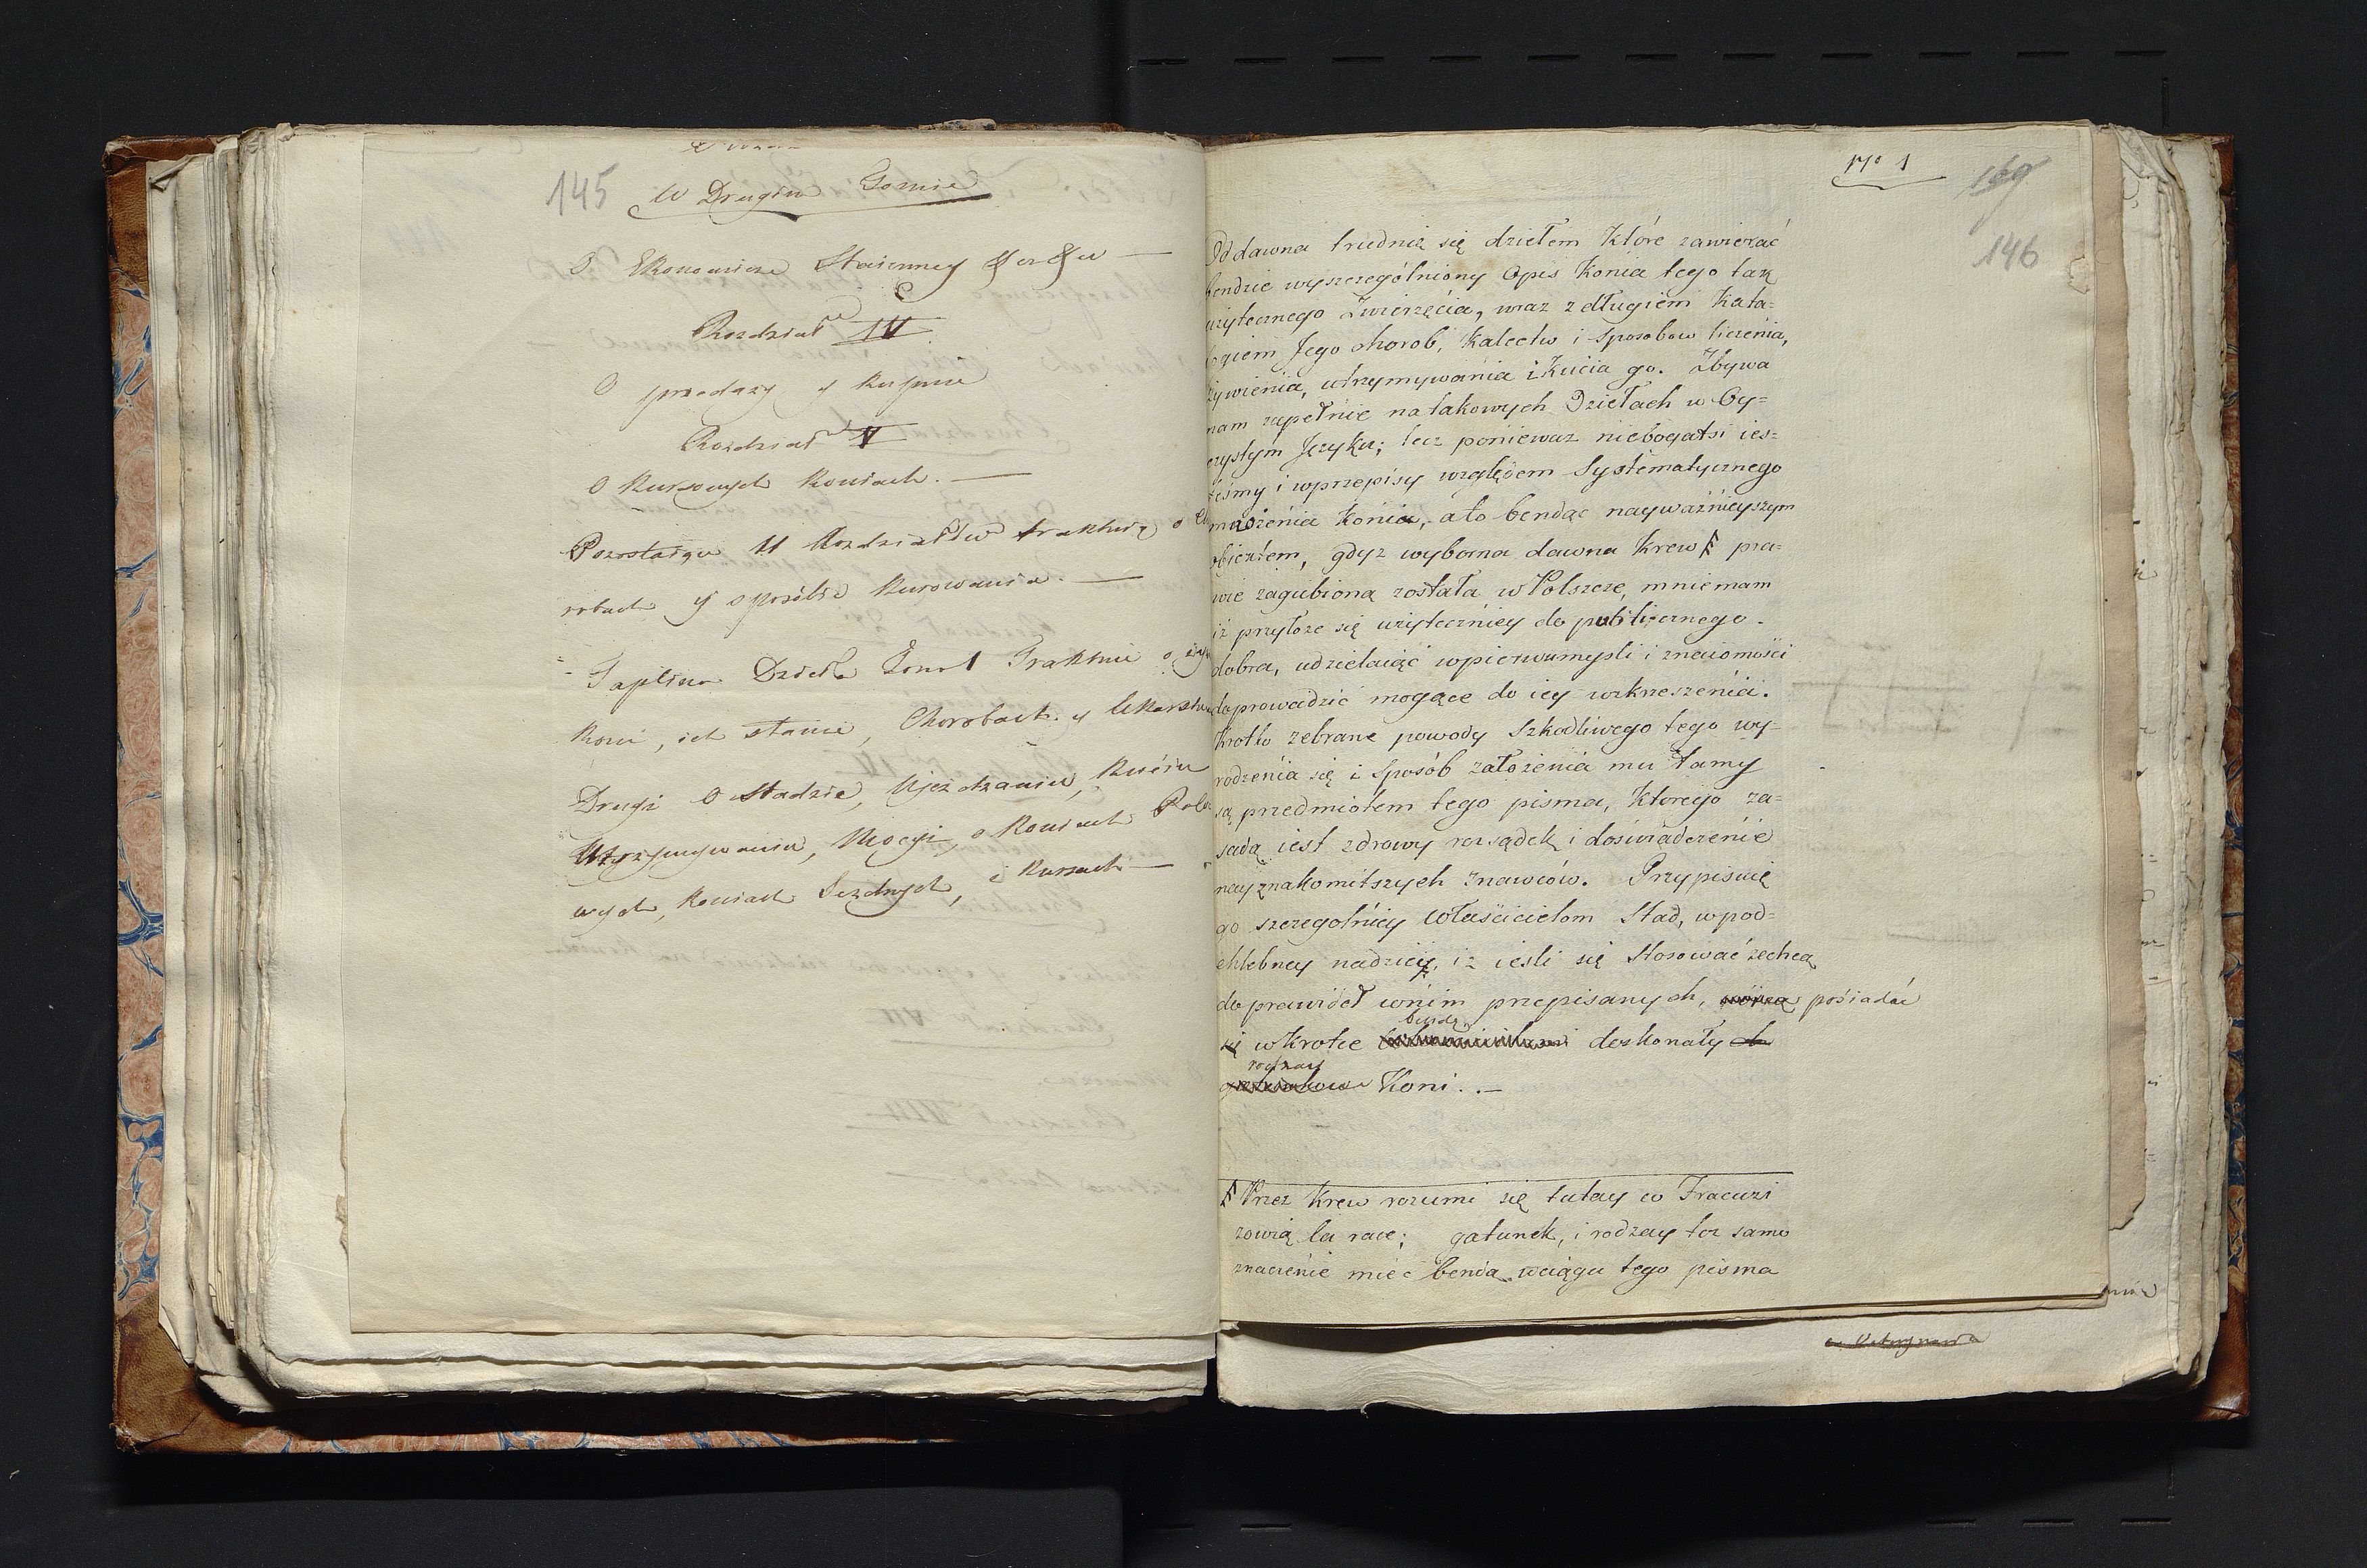 145
W Drugim Tomie
O Ekonomice Staienney
Rozdział IV
O przedaży y kupnie
Rozdział V
O Kursowych Koniach. —
Pozostaiące 11 Rozdziałów traktuią o
robach y sposobie kurowania. —
Taplina Dzieła Tom 1 Traktuie o
Koni, ich stanie, Chorobach y lekarstw
Drugi O Stadzie, Ujeżdzaniu, Kuciu
Utrzymywaniu, Mocyi, o Koniach Polo
wych, Koniach Jezdnych, i Kursach —
No 1
169
146
Oddawna trudnię się dziełem które zawierać
bendzie wyszczególniony Opis Konia tego tak
użytecznego Zwierzęcia, wraz z długiem Kata=
logiem Jego chorob, kalectw i sposobow liczenia,
żywienia, utrzymywania i kucia go. Zbywa
nam zupełnie na takowych Dziełach w Oy=
czystym Języku; lecz ponieważ niebogatsi ies=
teśmy i w przepisy względem Systematycznego
mnożenia Konia, a to bendąc nayważnieyszym
obiektem, gdyż wyborna dawna Krew pra=
wie zagubioną została w Polszcze, mniemam
iż przyłoże się użyteczniey do publicznego
dobra, udzielaiąc wpierw myśli i znaiomości
doprowadzić mogące do iey wskrzeszenia.
Krotko zebrane powody Szkodliwego tego wy=
rodzenia się i Sposób założenia mu tamy
są przedmiotem tego pisma, ktorego za=
sadą iest zdrowy rozsądek i doświadczenie
nayznakomitszych znawców. Przypisuię
go szczegolniey Właścicielom Stad, w pod=
chlebney nadzieiy, iż iesli się Stosować zechcą
do prawideł w nim przepisanych, posiadać
będą
się wkrotce doskonały ch
rodzay
gatunkow Koni. . —
Przez Krew rozumi się tutay co Fracuzi
zowią la race; gatunek, i rodzay toż samo
znaczenie mieć benda wciągu tego pisma